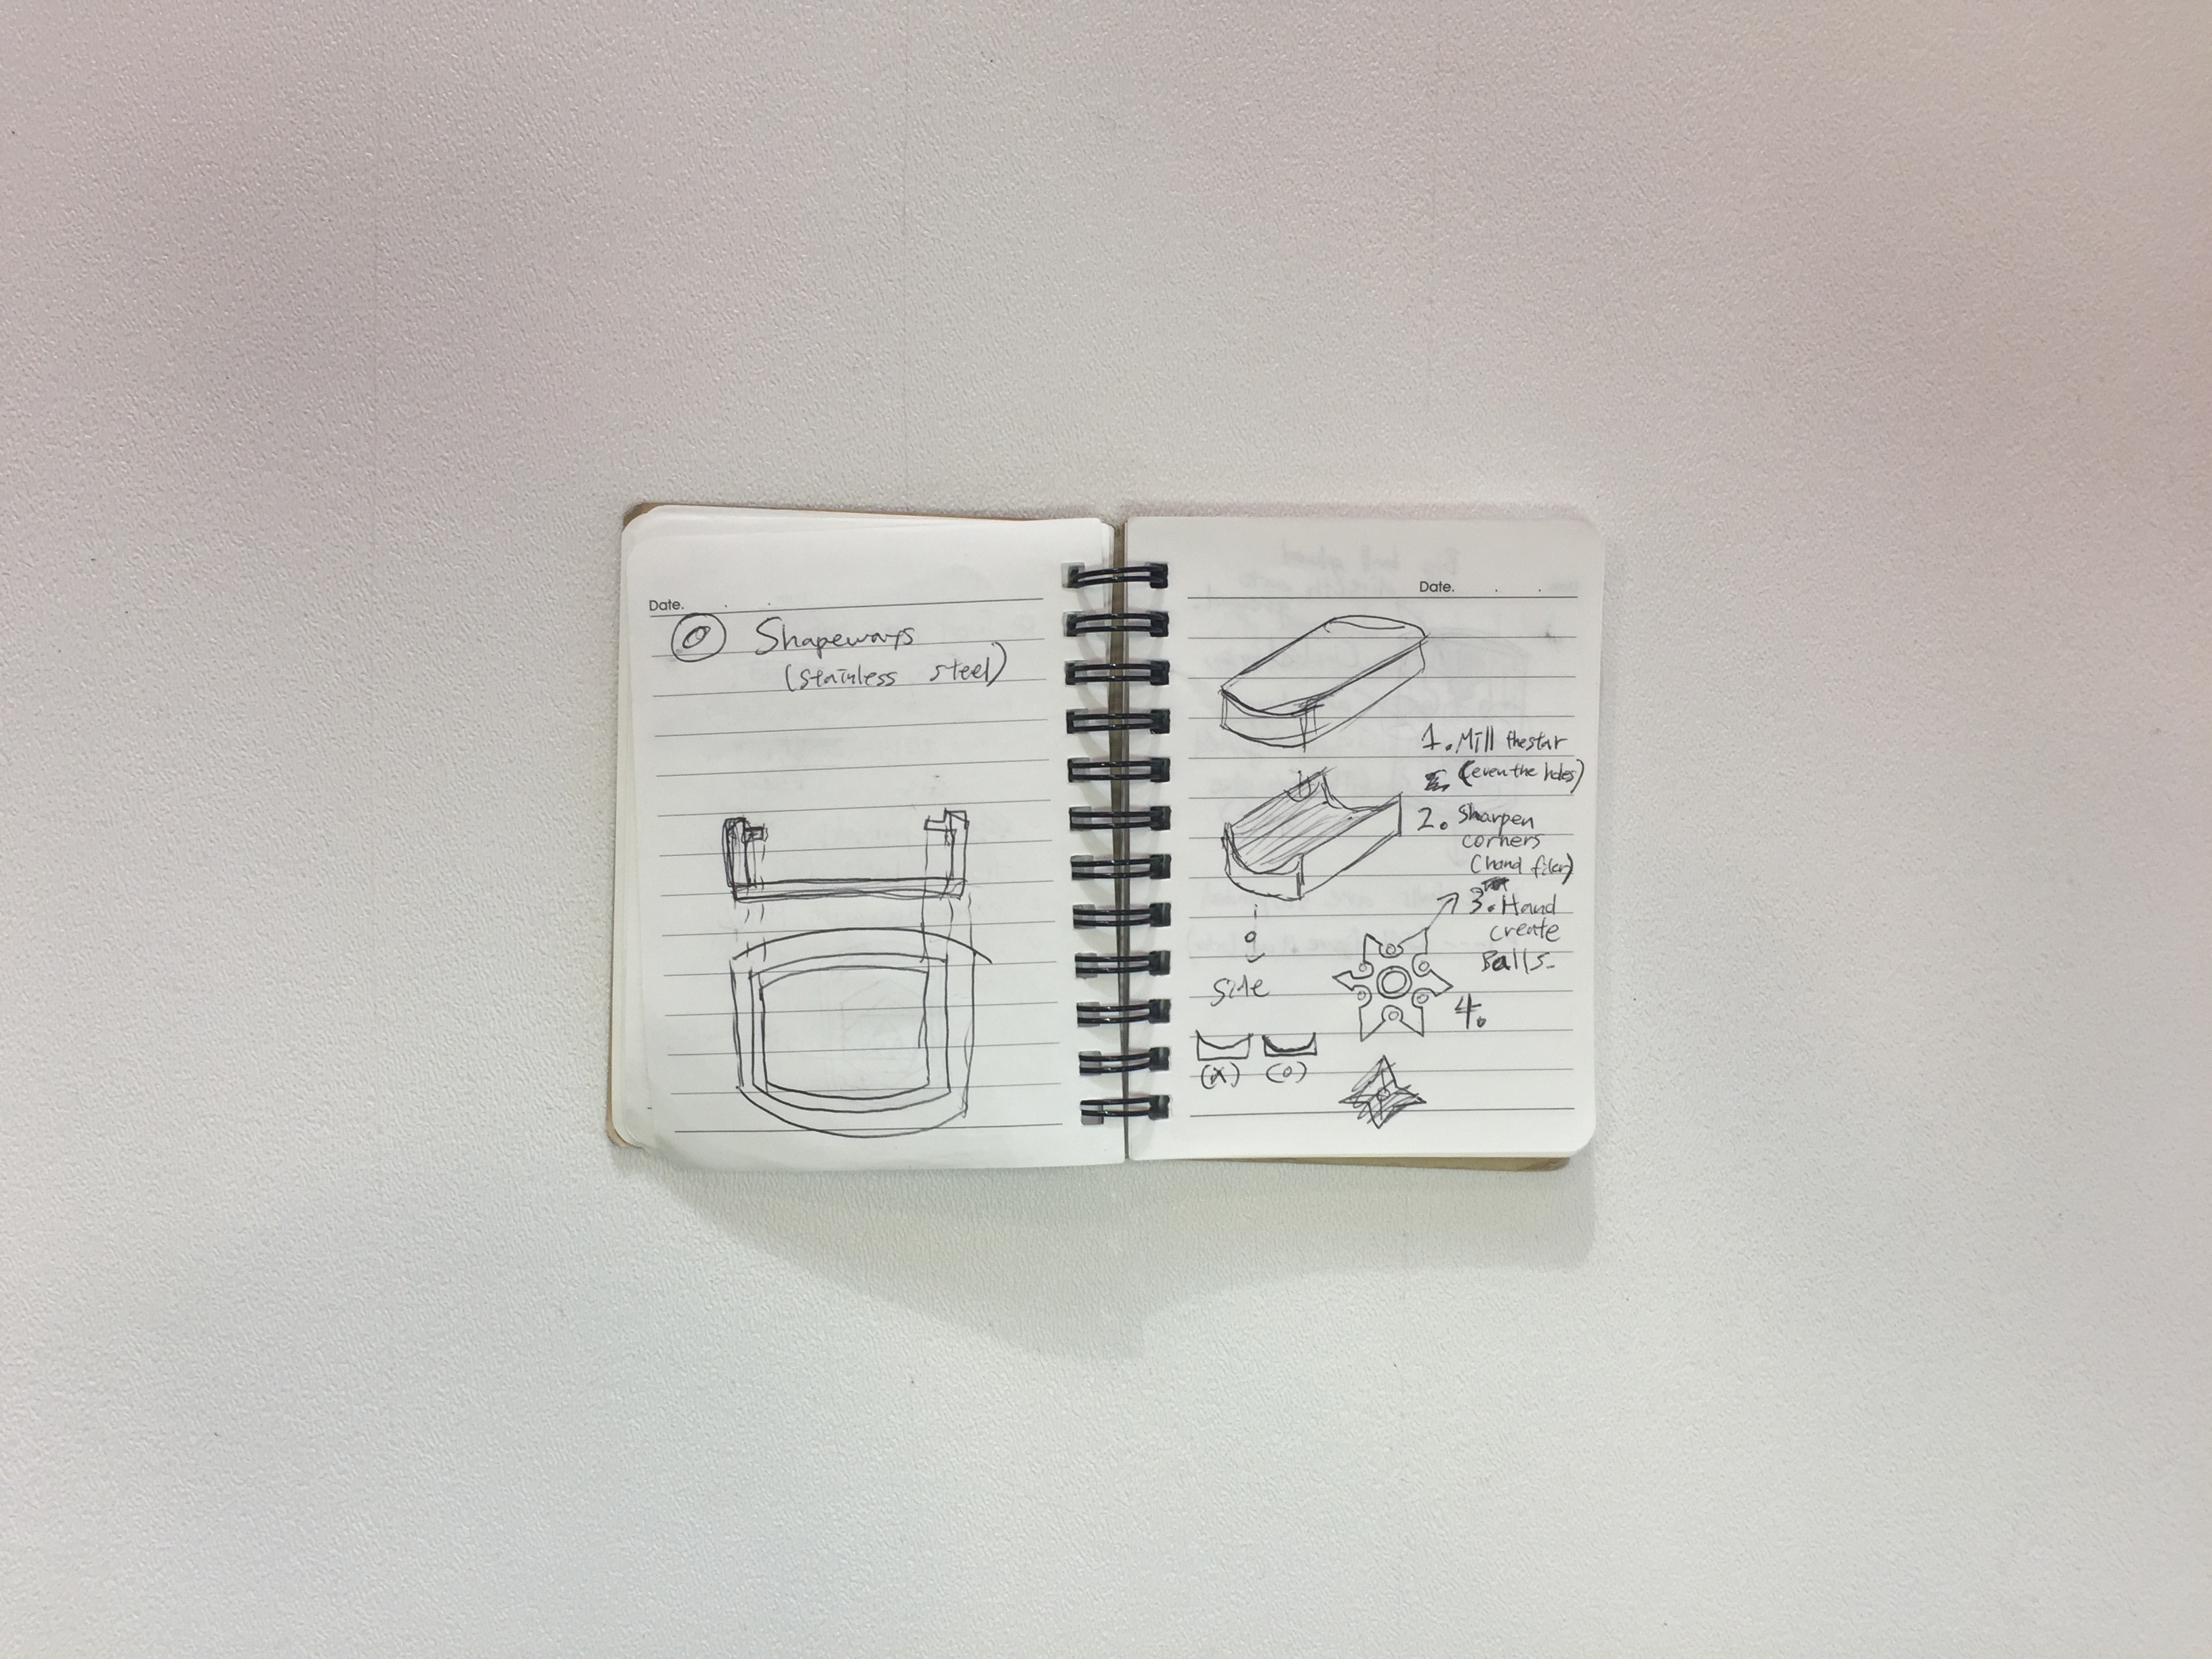 Date.
Shapeways
(stainless steel)
Date.
1. Mill the star
(even the holes)
2. Sharpen
corners
(hand filer)
3. Hand
create
Balls.
side
4.
(x) (o)